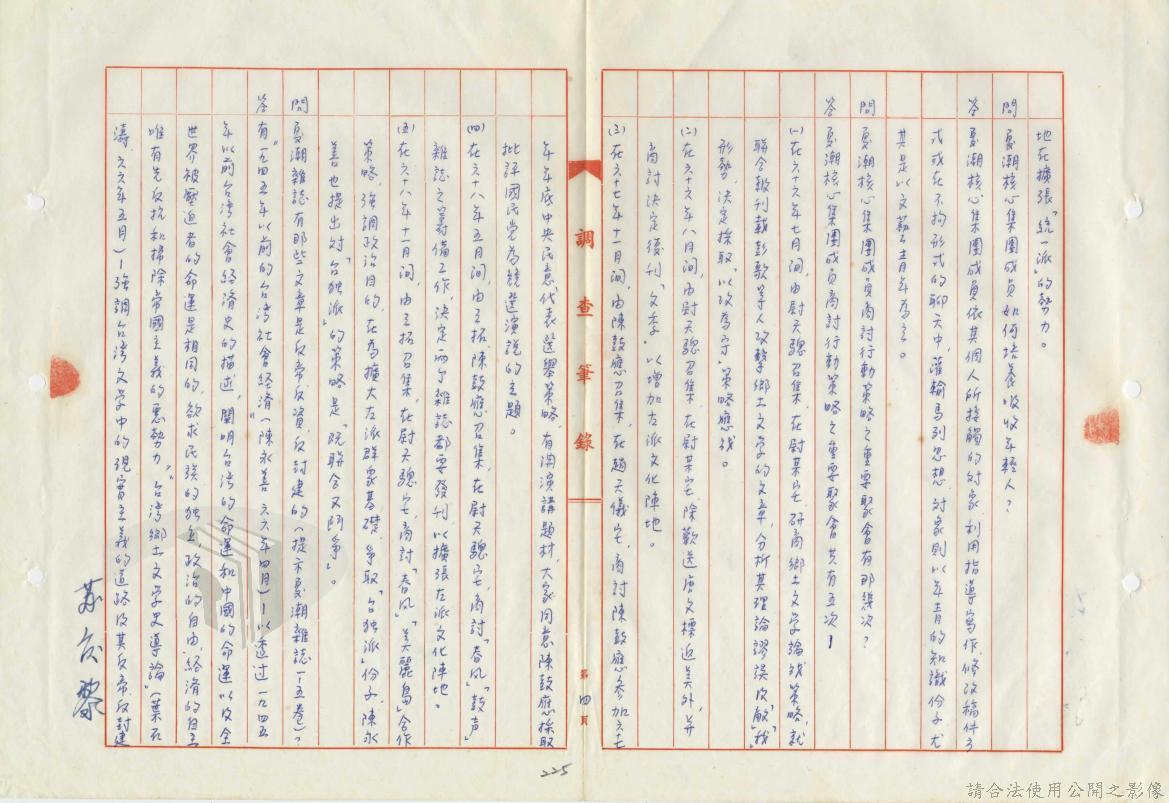 地在擴張「統一派」的勢力。
問 夏潮核心集團成員如何培養吸收年輕人?
答 夏潮核心集團成員依其個人所接觸的對象利用指導寫作、修改稿件方
式或在不拘形式的聊天中,灌輸馬列思想,對象則以年青的知識份子尤
其是以文藝青年為主。
問 夏潮核心集團成員商討行動策略之重要聚會有那幾次?
答 夏潮核心集團成員商討行動策略之重要聚會共有五次—
(一)在六十六年七月間,由尉天驄召集,在尉某宅,研商鄉土文學論戰策略,就
聯合報刊載彭歌等人攻擊鄉土文學的文章,分析其理論謬誤及「敵」「我」
形勢,決定採取「以攻為守」策略應戰。
(二)在六十六年八月間,由尉天驄召集,在尉某宅,除歡送唐文標返美外,并
商討決定復刊「文季」以增加左派文化陣地。
(三)在六十七年十一月間,由陳鼓應召集,在趙天儀宅,商討陳鼓應參加六七
調查筆錄
第四頁
年年底中央民意代表選舉策略,有関演講題材,大家同意陳鼓應採取
批評國民党為競選演說的主題。
(四)在六十八年五月間,由王拓、陳鼓應召集,在尉天驄宅,商討「春風」「鼓声」
雜誌之籌備工作,決定两个雜誌都要發刊,以擴張左派文化陣地。
(五)在六十八年十一月間,由王拓召集,在尉天驄宅,商討「春風」「美麗島」合作
策略,強調政治目的,在為擴大左派群衆基礎,爭取「台独派」份子,陳永
善也提出対「台独派」的策略是「既聯合又鬥爭」。
問 夏潮雜誌有那些文章是反帝、反資、反封建的(提示夏潮雜誌一—五卷)?
答 有「一九四五年以前的台湾社會經済」(陳永善、六六年四月)—以透过一九四五
年以前台湾社會經済史的描述,闡明台湾的命運和中國的命運以及全
世界被壓迫者的命運是相同的,欲求民族的独立,政治的自由,經済的自主
唯有先反抗和掃除帝國主義的惡勢力。「台湾鄉土文学史導論」(葉石
濤、六六年五月)—強調台湾文学中的現實主義的道路及其反帝、反封建
苏庆黎
225
請合法使用公開之影像